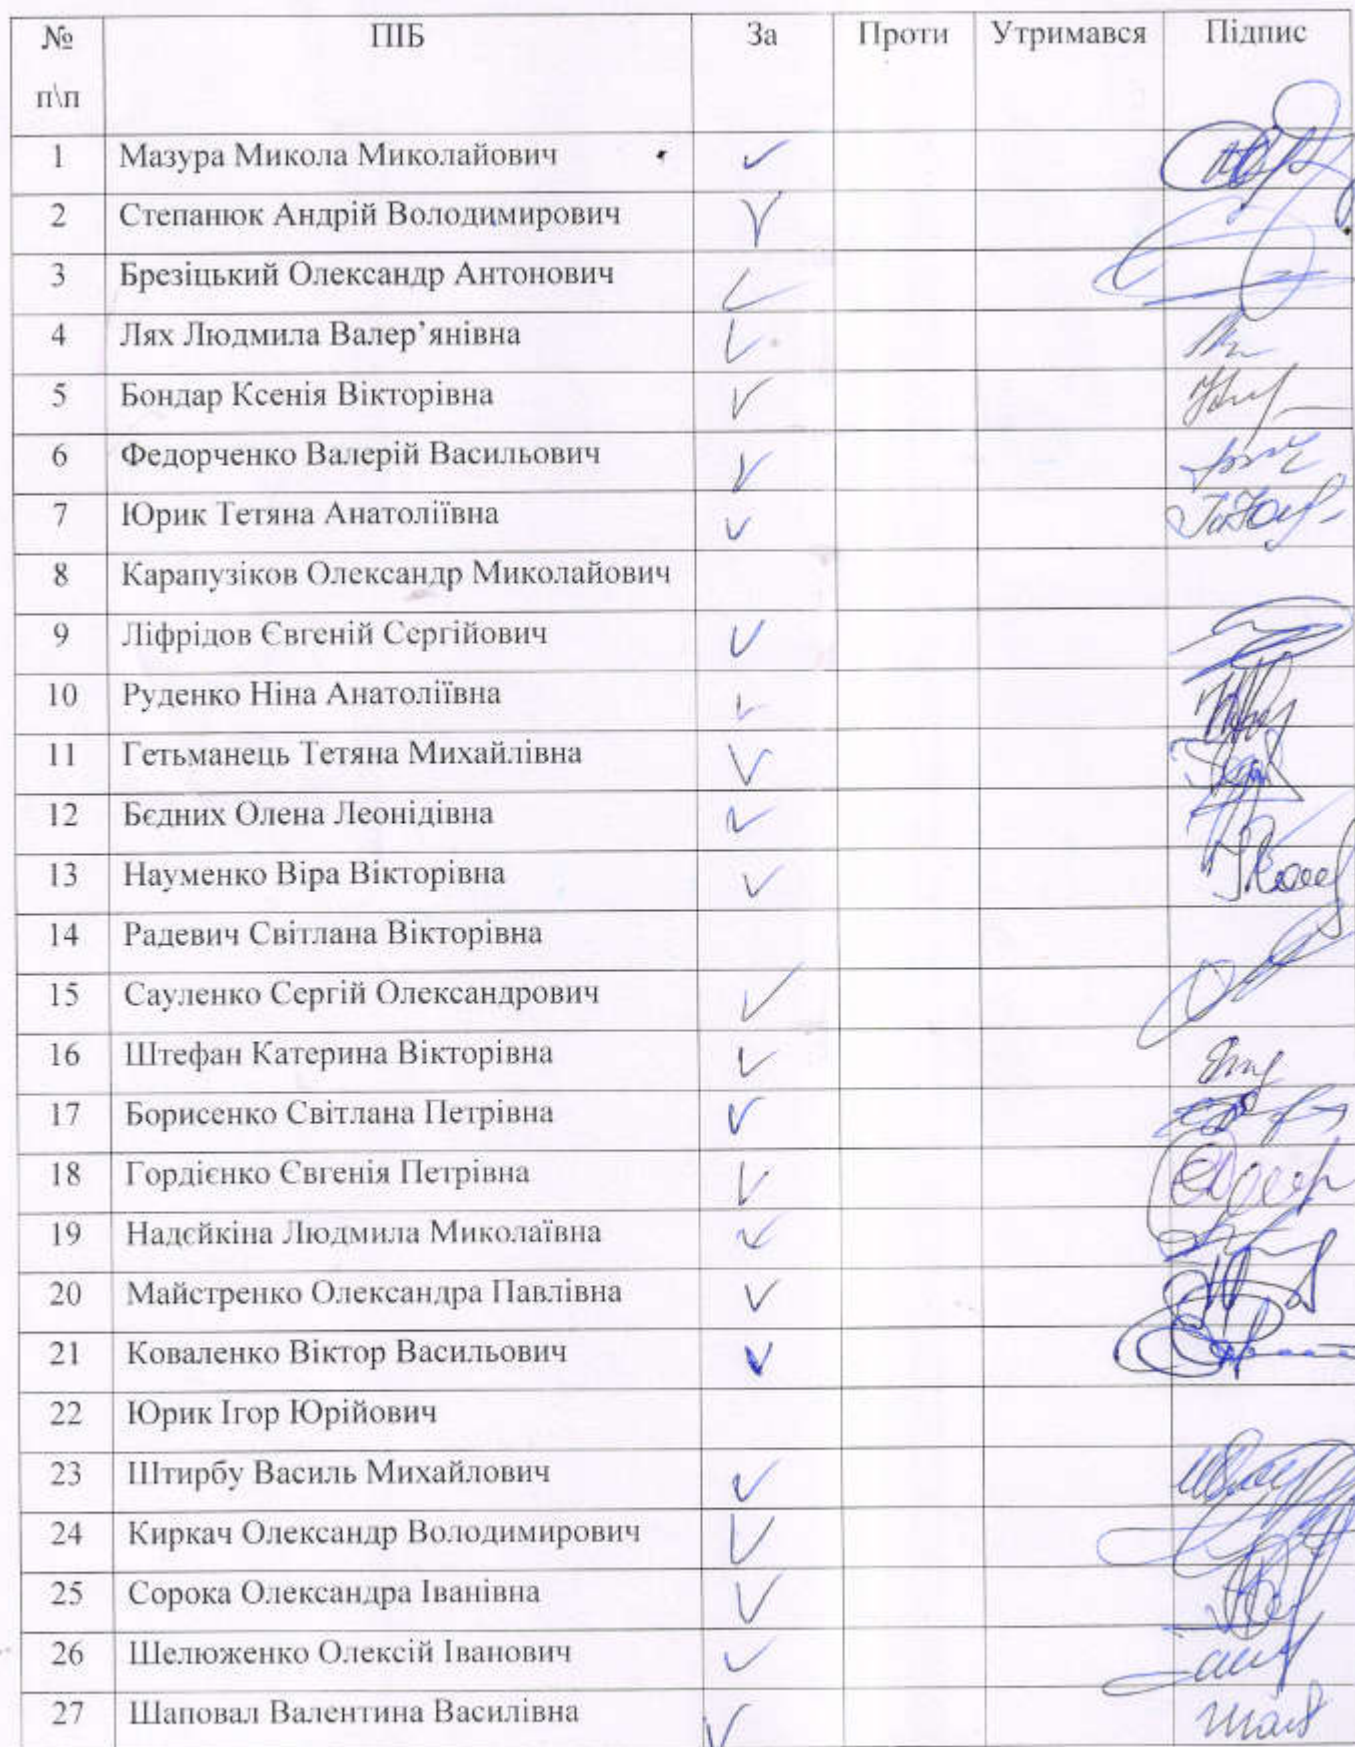 № п\п ПІБ За Проти Утримався Підпис
1 Мазура Микола Миколайович
2 Степанюк Андрій Володимирович
3 Брезіцький Олександр Антонович
4 Лях Людмила Валер’янівна
5 Бондар Ксенія Вікторівна
6 Федорченко Валерій Васильович
7 Юрик Тетяна Анатоліївна
8 Карапузіков Олександр Миколайович
9 Ліфрідов Євгеній Сергійович
10 Руденко Ніна Анатоліївна
11 Гетьманець Тетяна Михайлівна
12 Бєдних Олена Леонідівна
13 Науменко Віра Вікторівна
14 Радевич Світлана Вікторівна
15 Сауленко Сергій Олександрович
16 Штефан Катерина Вікторівна
17 Борисенко Світлана Петрівна
18 Гордієнко Євгенія Петрівна
19 Надєйкіна Людмила Миколаївна
20 Майстренко Олександра Павлівна
21 Коваленко Віктор Васильович
22 Юрик Ігор Юрійович
23 Штирбу Василь Михайлович
24 Киркач Олександр Володимирович
25 Сорока Олександра Іванівна
26 Шелюженко Олексій Іванович
27 Шаповал Валентина Василівна